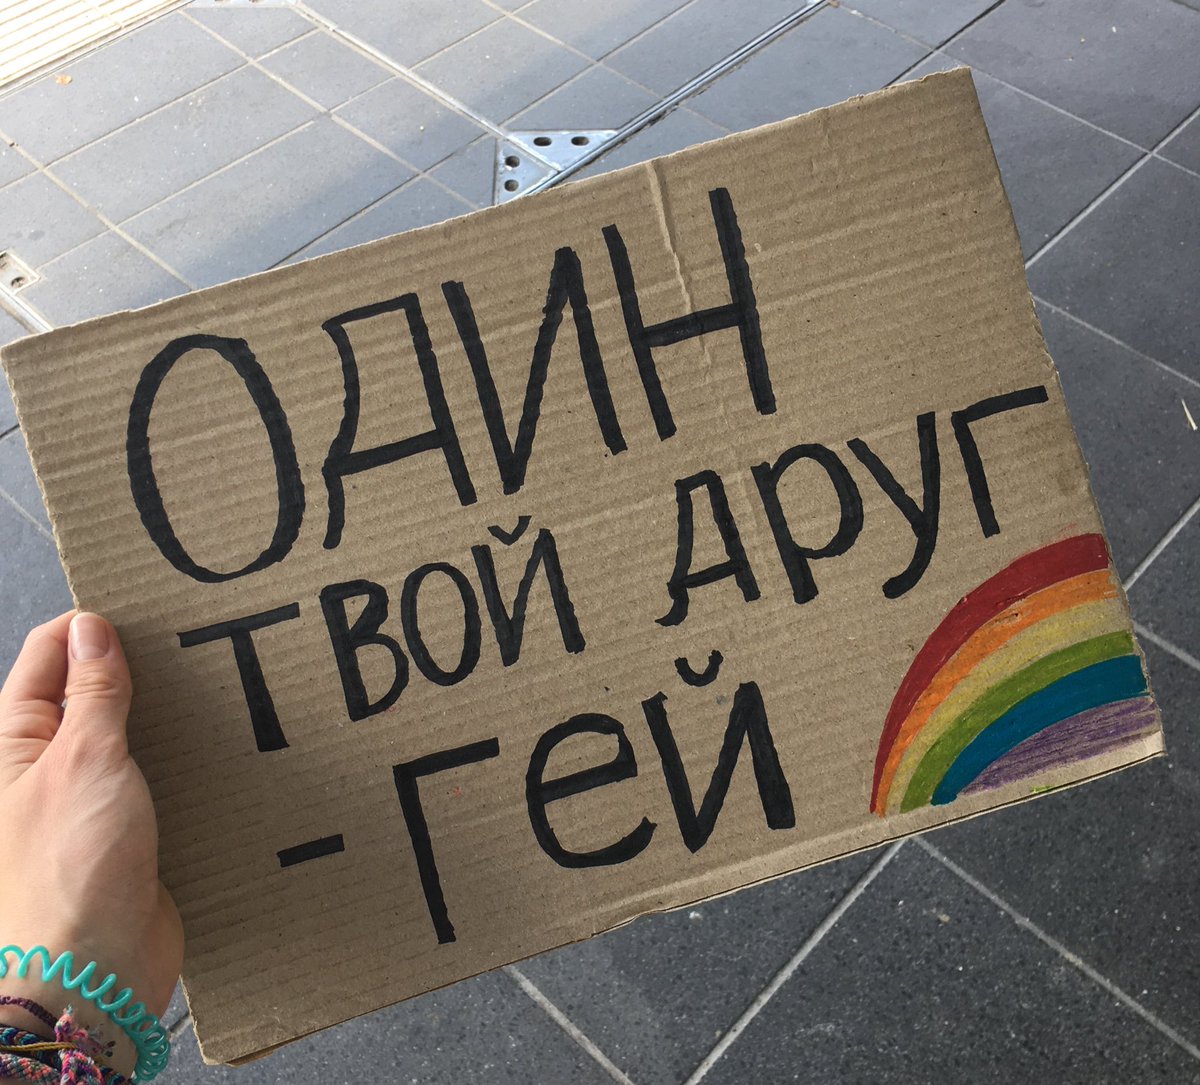 ОДИН
ТВОЙ ДРУГ
-ГЕЙ